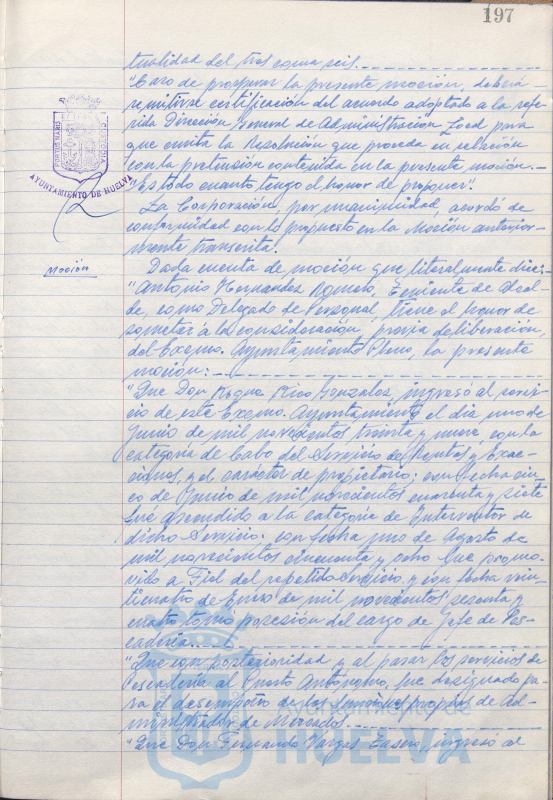 197
tualidad del tres coma seis.
"Caso de prosperar la presente moción, deberá
remitirse certificación del acuerdo adoptado a la refe-
rida Dirección General de Administración Local para
que emita la Resolución que proceda en relación
con la pretensión contenida en la presente moción.-
"Es todo cuanto tengo el honor de proponer".
La Corporación por unanimidad, acordó de
conformidad con lo propuesto en la Moción anterior-
mente transcrita.
AYUNTAMIENTO DE HUELVA
Moción
Dada cuenta de moción que literalmente dice:-
"Antonio Hernández Teniente de Alcal-
de, como Delegado de Personal, tiene el honor de
someter a la consideración, previa deliberación,
del Excmo. Ayuntamiento Pleno, la presente
moción:
"Que Don Roque Rico González, ingresó al servi-
cio de este Excmo. Ayuntamiento el día uno de
Junio de mil novecientos treinta y nueve, con la
categoría de Cabo del Servicio de Rentas y Exac-
ciones, y el carácter de propietario; con fecha cin-
co de Junio de mil novecientos cuarenta y siete
fué ascendido a la categoría de Interventor de
dicho Servicio; con fecha uno de Agosto de
mil novecientos cincuenta y ocho fue promo-
vido a Fiel del repetido Servicio y con fecha vein-
ticuatro de Enero de mil novecientos sesenta y
cuatro tomó posesión del cargo de Jefe de Pes-
cadería.
"Que con posterioridad y al pasar los servicios de
Pescadería al Puerto Autónomo, fue designado pa-
ra el desempeño de las funciones propias de Ad-
ministrador de Mercados.
"Que Don Fernando Vargas ingresó al
HUELVA